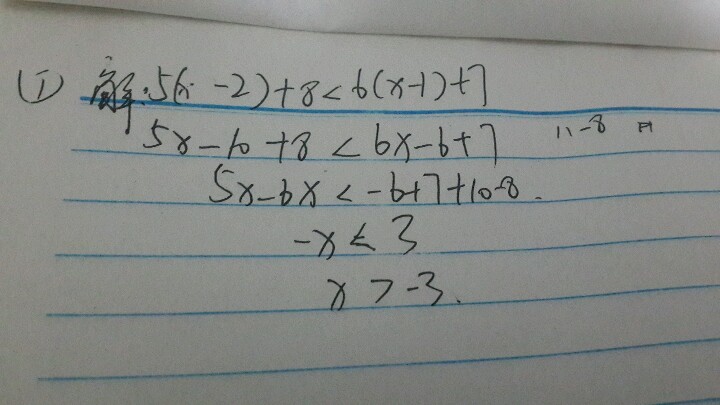 ① 解:5(x-2)+8<6(x-1)+7
5x-10+8<6x-6+7
11-8
5x-6x<-6+7+10-8.
-x<3
x>-3.